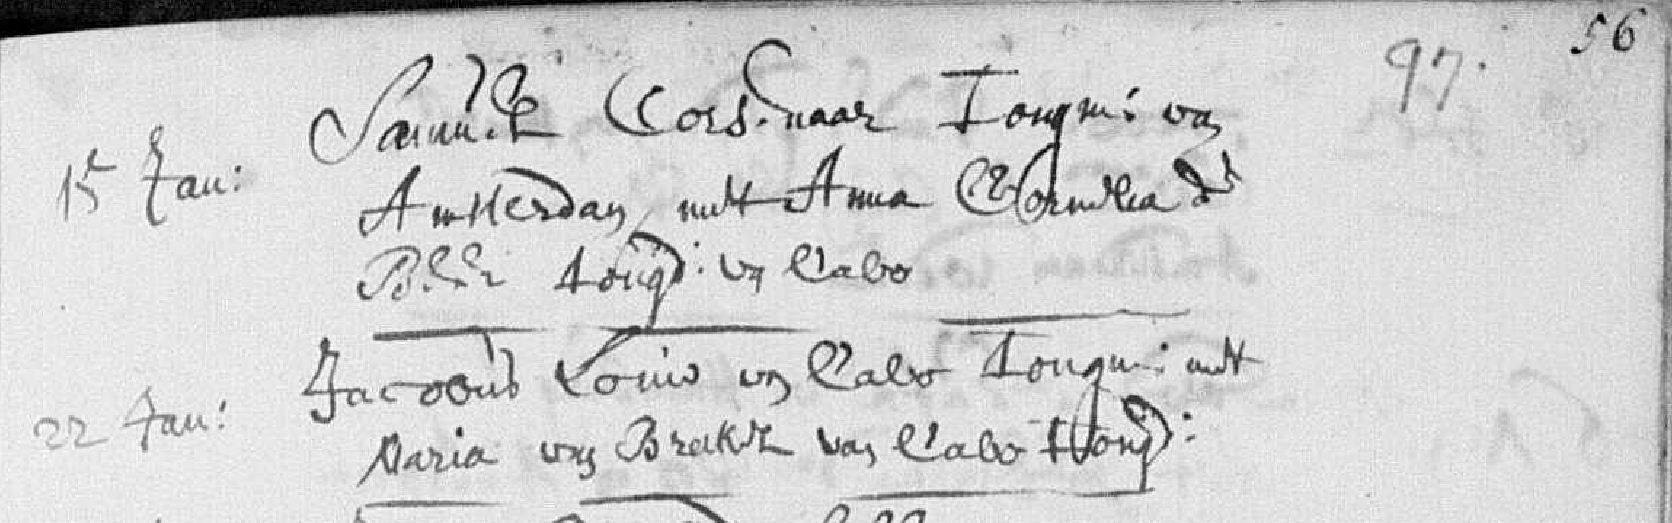 56
97.
15 Jan: Samuel Corsenaar Jongm: van
Amsterdam, mett Anna Cornelia
Jongd: vn Cabo
22 Jan: Jacobus Louw vn Cabo Jongm: mett
Maria van Brakel van Cabo Jongd: